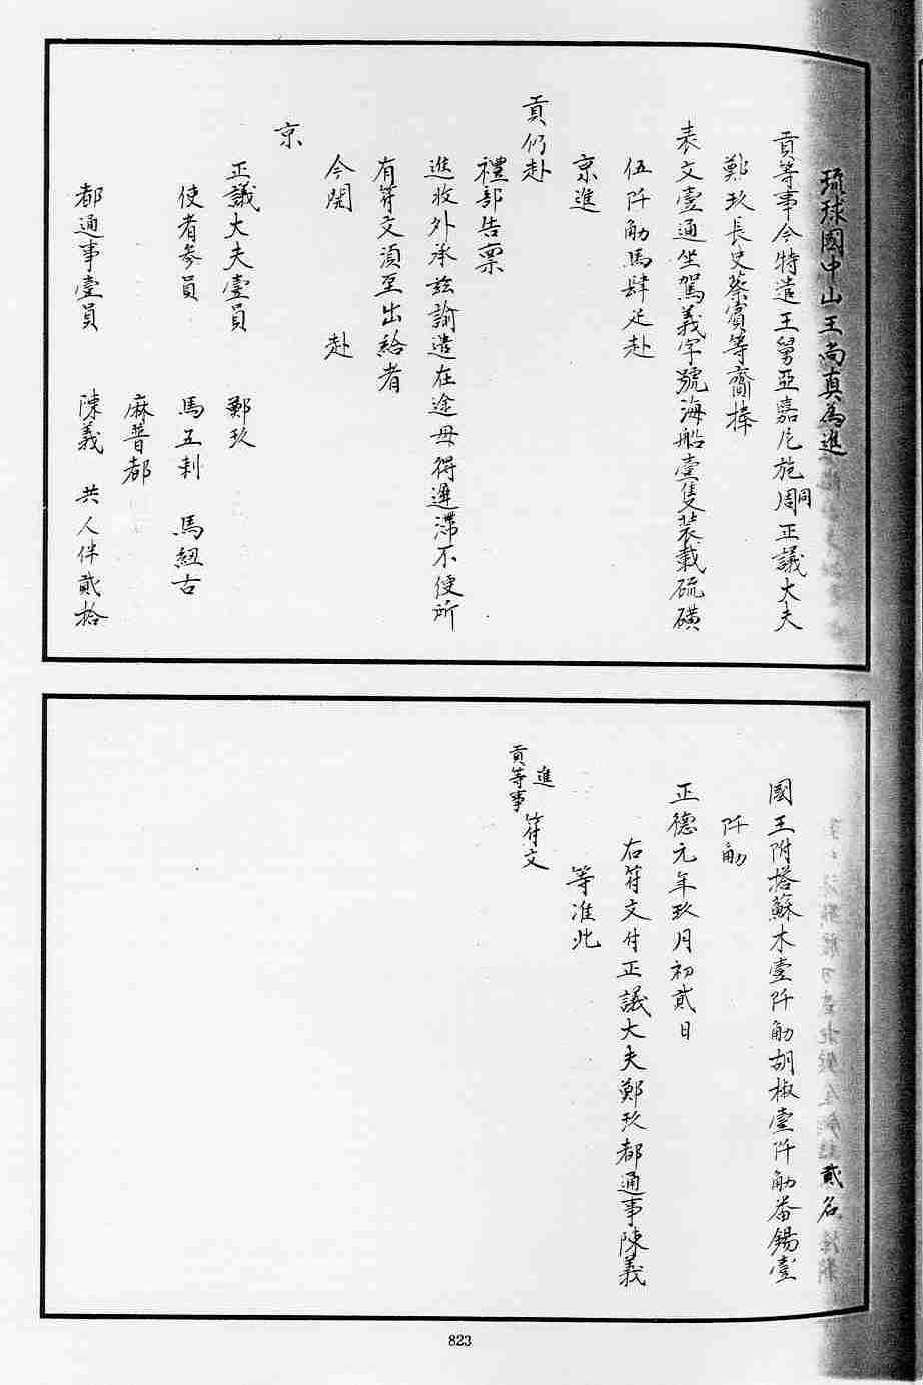 琉球國中山王尚真為進
貢等事今特遣王舅亞嘉尼施周同正議大夫
鄭玖長史蔡賓等齎捧
表文壹通坐駕義字號海船壹隻裝載硫磺
伍阡觔馬肆疋赴
京進
貢仍赴
禮部告稟
進收外承茲諭遣在途毋得遲滯不便所
有符文須至出給者
今開 赴
京
正議大夫壹員 鄭玖
使者參員 馬五剌 馬紐古
麻普都
都通事壹員 陳義 共人伴貳拾
貳名
國王附搭蘇木壹阡觔胡椒壹阡觔番錫壹
阡觔
正德元年玖月初貳日
右符文付正議大夫鄭玖都通事陳義
等准此
進
貢等事
符文
823